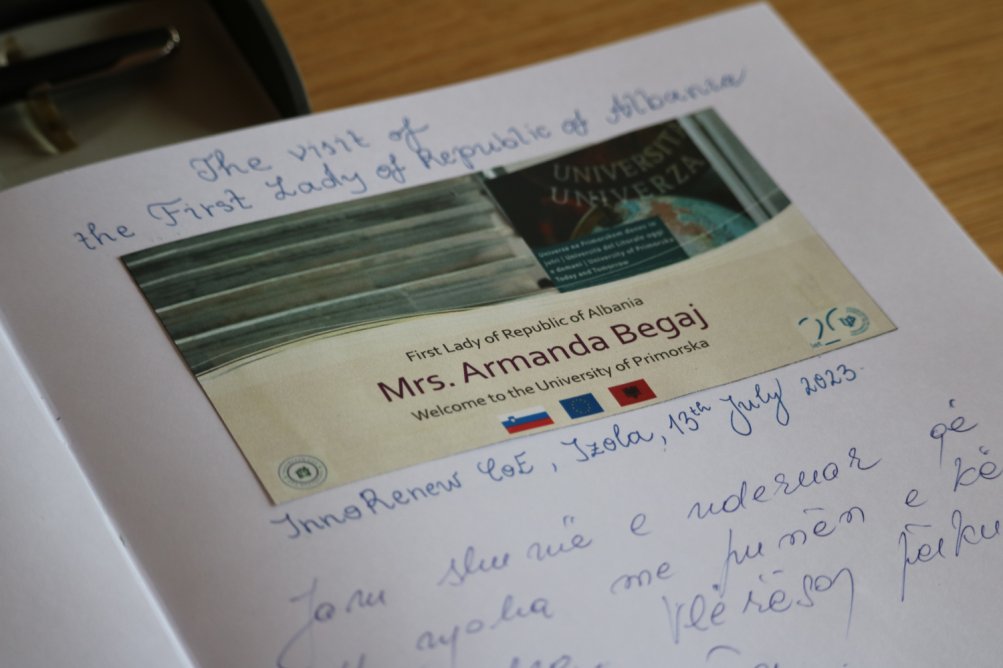 The visit of
the First Lady of Republic of Albania
UNIVERSIT
UNIVERZA
Univerza na Primorskem danes in
jutri | Università del Litorale oggi
e domani | University of Primorska
Today and Tomorrow
First Lady of Republic of Albania
Mrs. Armanda Begaj
Welcome to the University of Primorska
20
let
InnoRenew CoE, Izola, 13th July 2023.
Jam shumë e nderuar që
njoha me punën e kë
Vlerësoj